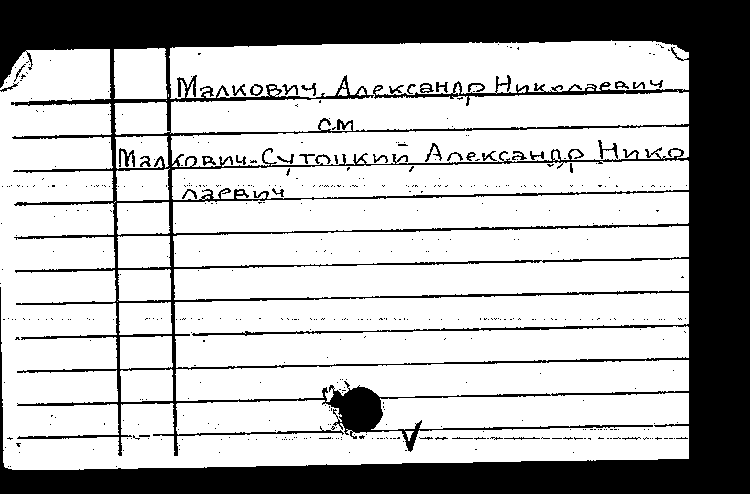 Малкович, Александр Николаевич
см.
Малкович-Сутоцкий, Александр Нико
лаевич
V